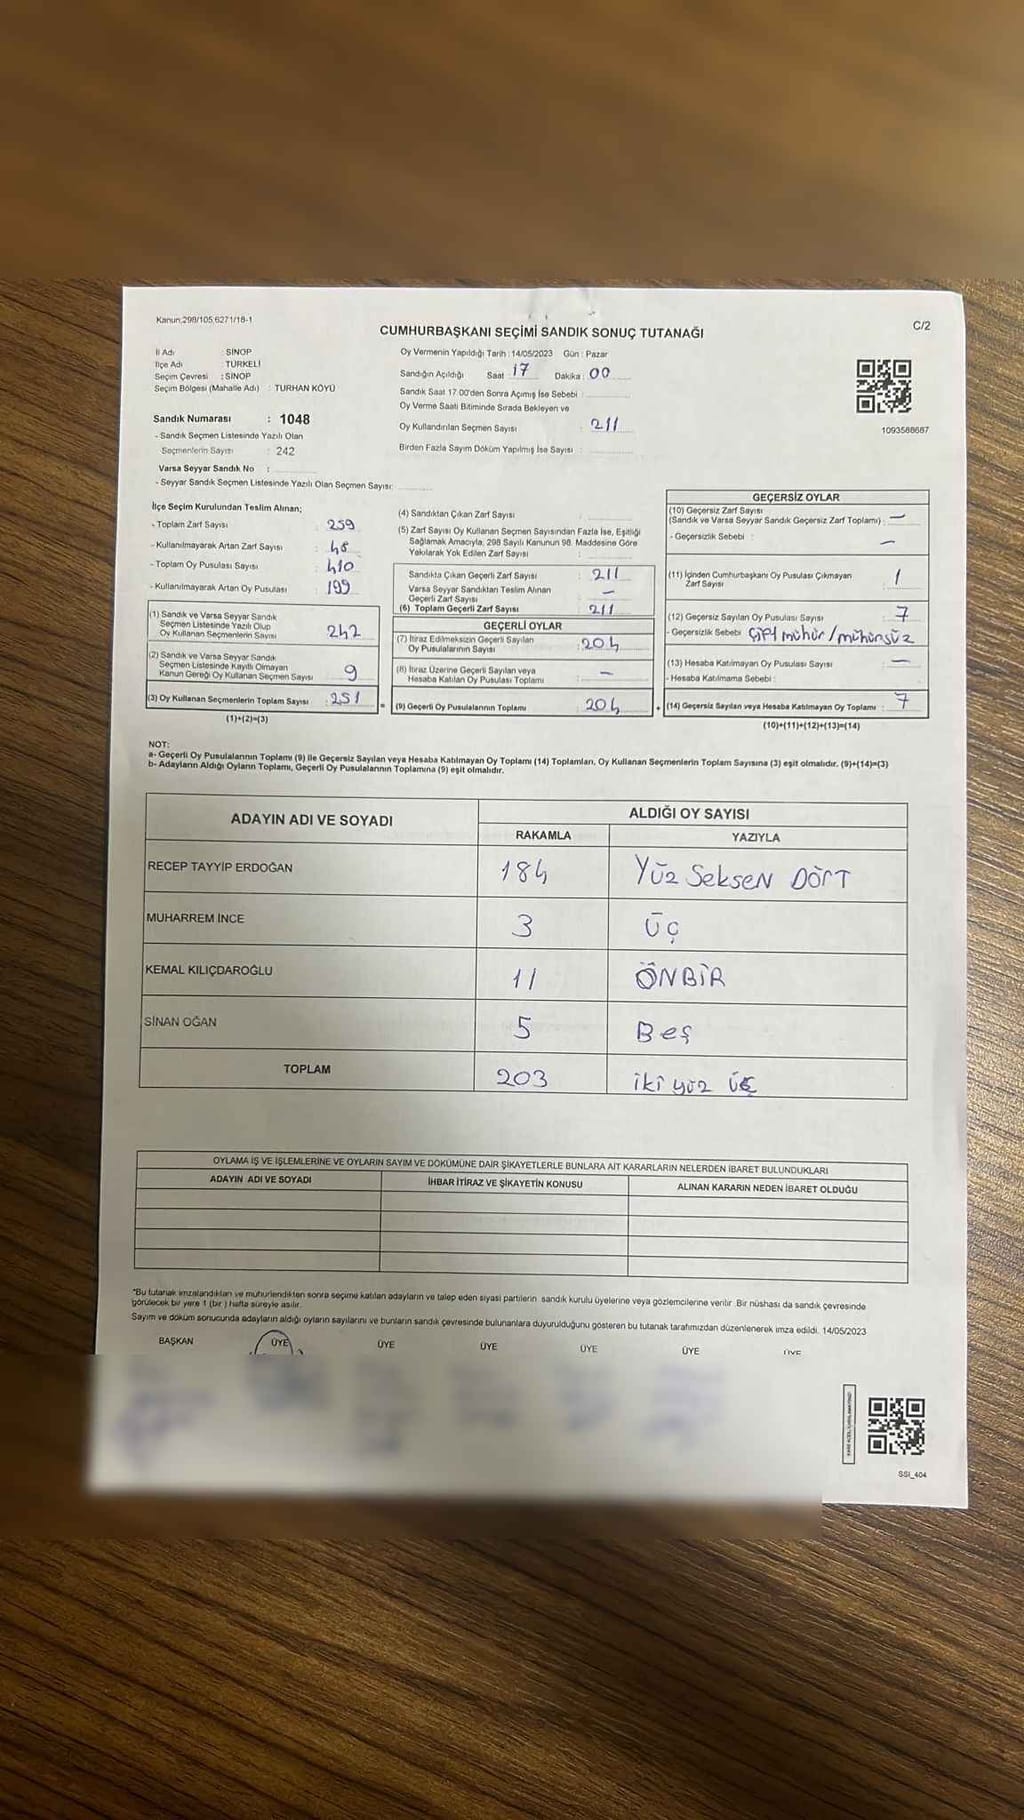 Kanun,298/105,6271/18-1
C/2
CUMHURBAŞKANI SEÇİMİ SANDIK SONUÇ TUTANAĞI
İl Adı : SİNOP
İlçe Adı : TÜRKELİ
Seçim Çevresi : SİNOP
Seçim Bölgesi (Mahalle Adı) : TURHAN KÖYÜ
Sandık Numarası : 1048
- Sandık Seçmen Listesinde Yazılı Olan
Seçmenlerin Sayısı : 242
Varsa Seyyar Sandık No :
- Seyyar Sandık Seçmen Listesinde Yazılı Olan Seçmen Sayısı:
Oy Vermenin Yapıldığı Tarih : 14/05/2023 Gün : Pazar
Sandığın Açıldığı Saat : 17 Dakika : 00
Sandık Saat 17.00'den Sonra Açımış İse Sebebi :
Oy Verme Saati Bitiminde Sırada Bekleyen ve
Oy Kullandırılan Seçmen Sayısı : 211
Birden Fazla Sayım Döküm Yapılmış İse Sayısı :
1093588687
İlçe Seçim Kurulundan Teslim Alınan;
- Toplam Zarf Sayısı : 259
- Kullanılmayarak Artan Zarf Sayısı : 48
- Toplam Oy Pusulası Sayısı : 410
- Kullanılmayarak Artan Oy Pusulası : 199
(1) Sandık ve Varsa Seyyar Sandık
Seçmen Listesinde Yazılı Olup
Oy Kullanan Seçmenlerin Sayısı : 242
(2) Sandık ve Varsa Seyyar Sandık
Seçmen Listesinde Kayıtlı Olmayan
Kanun Gereği Oy Kullanan Seçmen Sayısı : 9
(3) Oy Kullanan Seçmenlerin Toplam Sayısı : 251
(1)+(2)=(3)
(4) Sandıktan Çıkan Zarf Sayısı :
(5) Zarf Sayısı Oy Kullanan Seçmen Sayısından Fazla İse, Eşitliği
Sağlamak Amacıyla, 298 Sayılı Kanunun 98. Maddesine Göre
Yakılarak Yok Edilen Zarf Sayısı :
Sandıkta Çıkan Geçerli Zarf Sayısı : 211
Varsa Seyyar Sandıktan Teslim Alınan
Geçerli Zarf Sayısı : —
(6) Toplam Geçerli Zarf Sayısı : 211
GEÇERLİ OYLAR
(7) İtiraz Edilmeksizin Geçerli Sayılan
Oy Pusulalarının Sayısı : 204
(8) İtiraz Üzerine Geçerli Sayılan veya
Hesaba Katılan Oy Pusulası Toplamı : —
= (9) Geçerli Oy Pusulalarının Toplamı : 204 +
GEÇERSİZ OYLAR
(10) Geçersiz Zarf Sayısı
(Sandık ve Varsa Seyyar Sandık Geçersiz Zarf Toplamı) : —
- Geçersizlik Sebebi : —
(11) İçinden Cumhurbaşkanı Oy Pusulası Çıkmayan
Zarf Sayısı : 1
(12) Geçersiz Sayılan Oy Pusulası Sayısı : 7
- Geçersizlik Sebebi : Çift mühür/mühürsüz
(13) Hesaba Katılmayan Oy Pusulası Sayısı : —
- Hesaba Katılmama Sebebi :
(14) Geçersiz Sayılan veya Hesaba Katılmayan Oy Toplamı : 7
(10)+(11)+(12)+(13)=(14)
NOT:
a- Geçerli Oy Pusulalarının Toplamı (9) ile Geçersiz Sayılan veya Hesaba Katılmayan Oy Toplamı (14) Toplamları, Oy Kullanan Seçmenlerin Toplam Sayısına (3) eşit olmalıdır. (9)+(14)=(3)
b- Adayların Aldığı Oyların Toplamı, Geçerli Oy Pusulalarının Toplamına (9) eşit olmalıdır.
ADAYIN ADI VE SOYADI
ALDIĞI OY SAYISI
RAKAMLA YAZIYLA
RECEP TAYYİP ERDOĞAN 184 Yüz Seksen DÖRT
MUHARREM İNCE 3 Üç
KEMAL KILIÇDAROĞLU 11 ÖNBİR
SİNAN OĞAN 5 Beş
TOPLAM 203 iki yüz üç
OYLAMA İŞ VE İŞLEMLERİNE VE OYLARIN SAYIM VE DÖKÜMÜNE DAİR ŞİKAYETLERLE BUNLARA AİT KARARLARIN NELERDEN İBARET BULUNDUKLARI
ADAYIN ADI VE SOYADI İHBAR İTİRAZ VE ŞİKAYETİN KONUSU ALINAN KARARIN NEDEN İBARET OLDUĞU
*Bu tutanak imzalandıktan ve mühürlendikten sonra seçime katılan adayların ve talep eden siyasi partilerin sandık kurulu üyelerine veya gözlemcilerine verilir. Bir nüshası da sandık çevresinde
görülecek bir yere 1 (bir) hafta süreyle asılır.
Sayım ve döküm sonucunda adayların aldığı oyların sayılarını ve bunların sandık çevresinde bulunanlara duyurulduğunu gösteren bu tutanak tarafımızdan düzenlenerek imza edildi. 14/05/2023
BAŞKAN ÜYE ÜYE ÜYE ÜYE ÜYE ÜYE
SSI_404